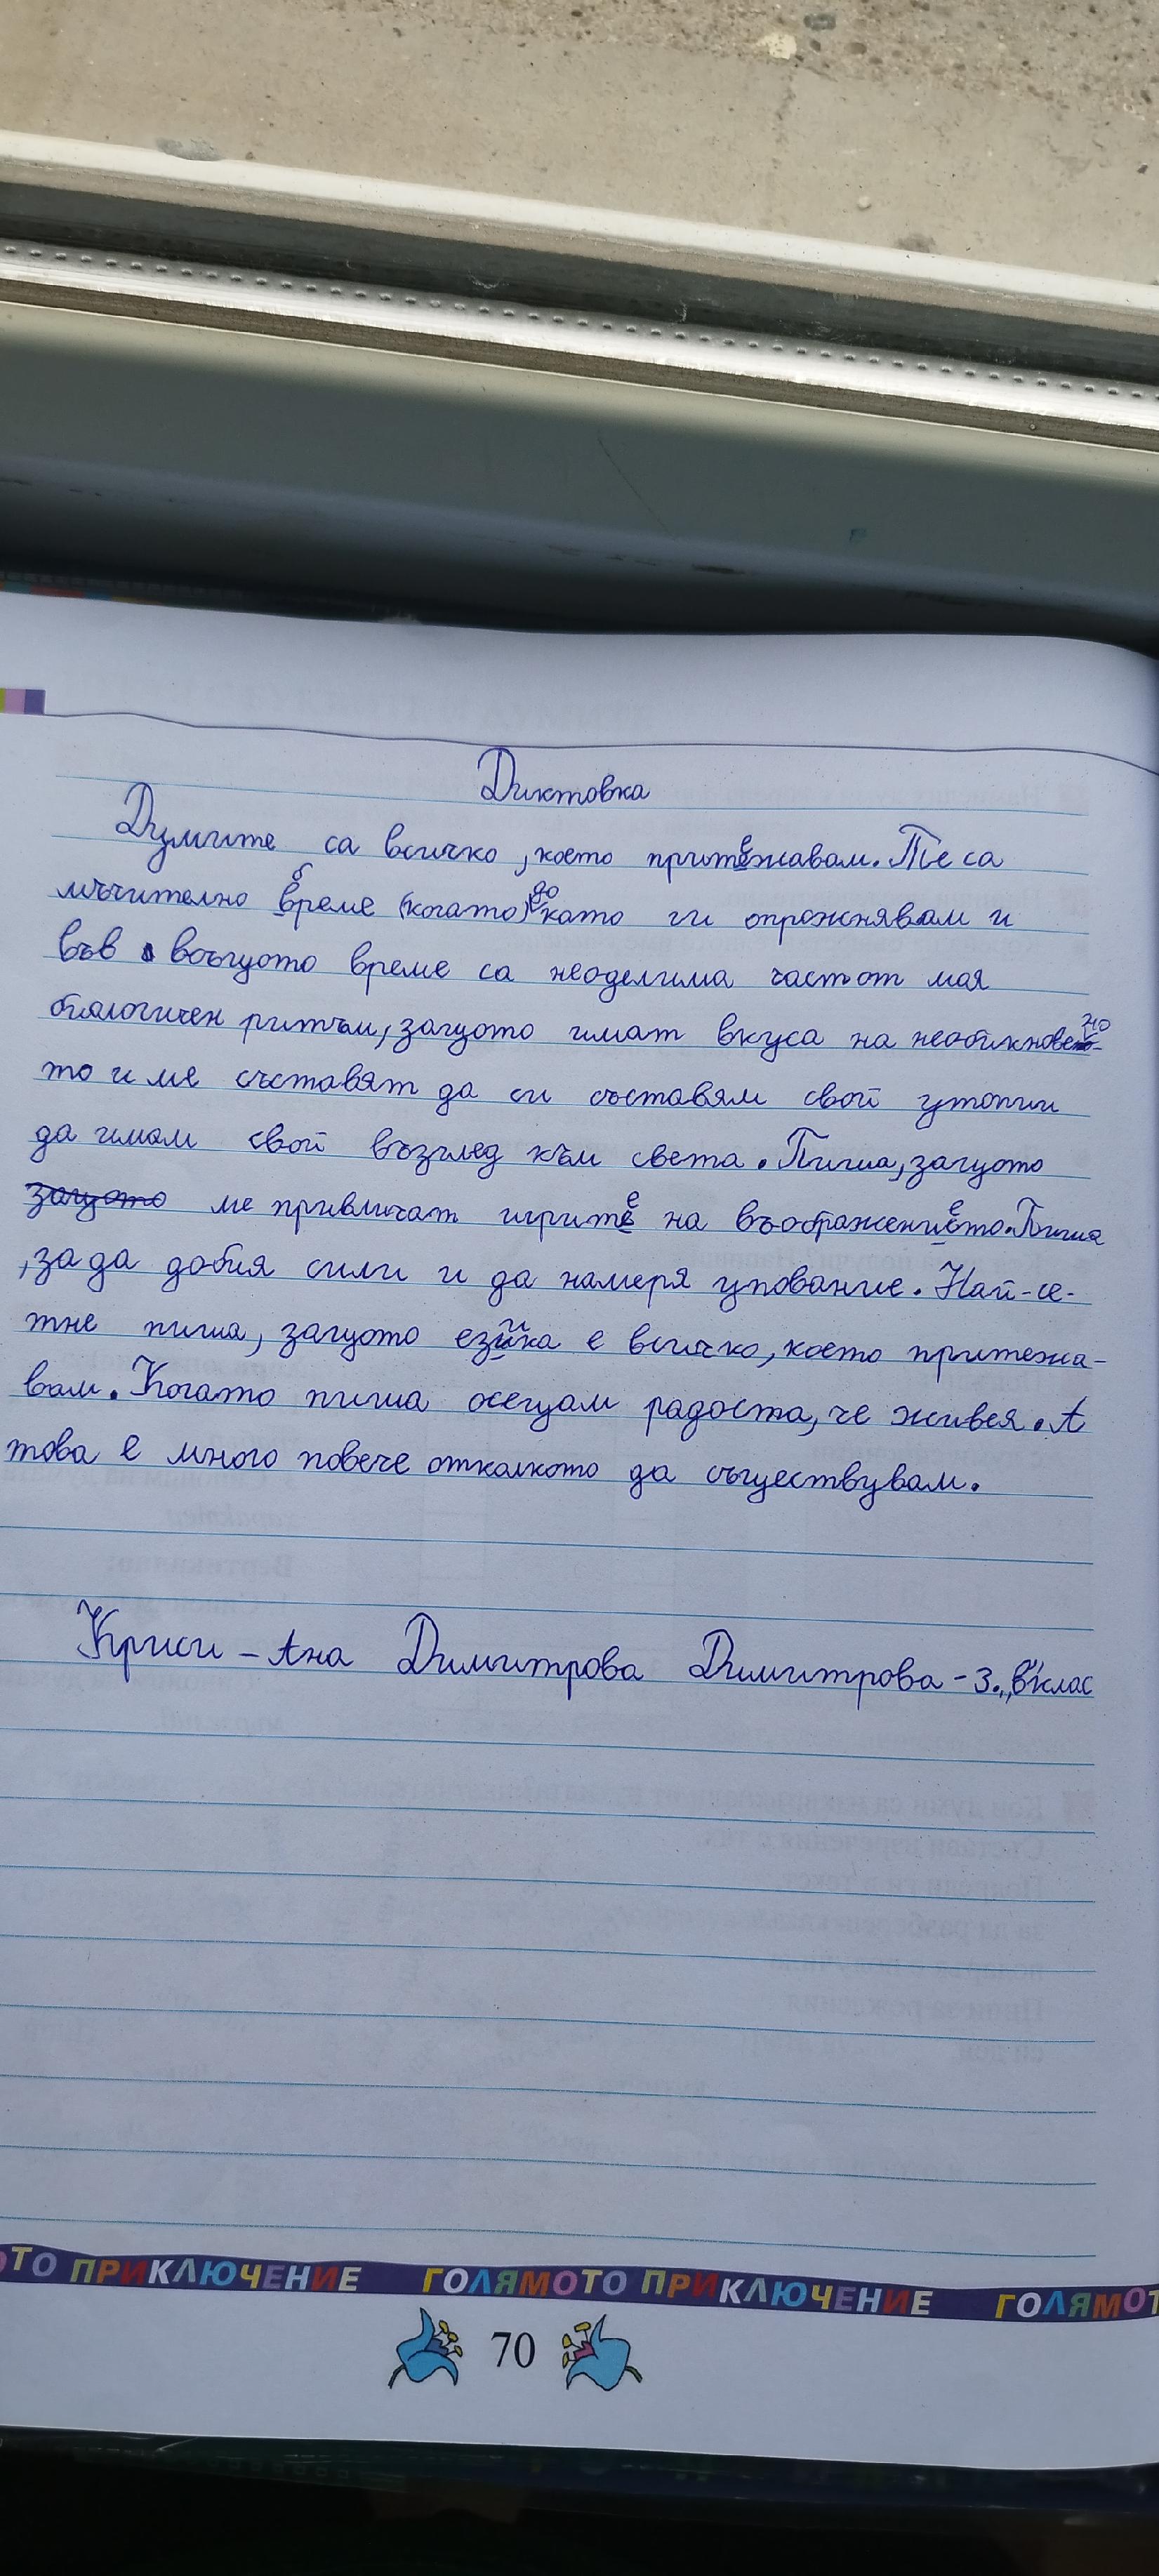 Диктовка
Думите са всичко, което притежавам. Те са
мъчително бреме (когато) докато ги опрожнявам и
във въъщото време са неоделима част от мая
биялогичен ритъм, защото имат вкуса на необикновено-
то и ме съставят да си съставям свой утопии
да имам свой възглед към света. Пиша, защото
защото ме привличат игрите на въображението. Пиша
, за да добия сили и да намеря упование. Най-се-
тне пиша, защото езика е всичко, което притежа-
вам. Когато пиша осещам радоста, че живея. А
това е много повече отколкото да съществувам.
Криси - Ана Димитрова Димитрова - 3. „в“ клас
ОТО ПРИКЛЮЧЕНИЕ ГОЛЯМОТО ПРИКЛЮЧЕНИЕ ГОЛЯМОТ
70